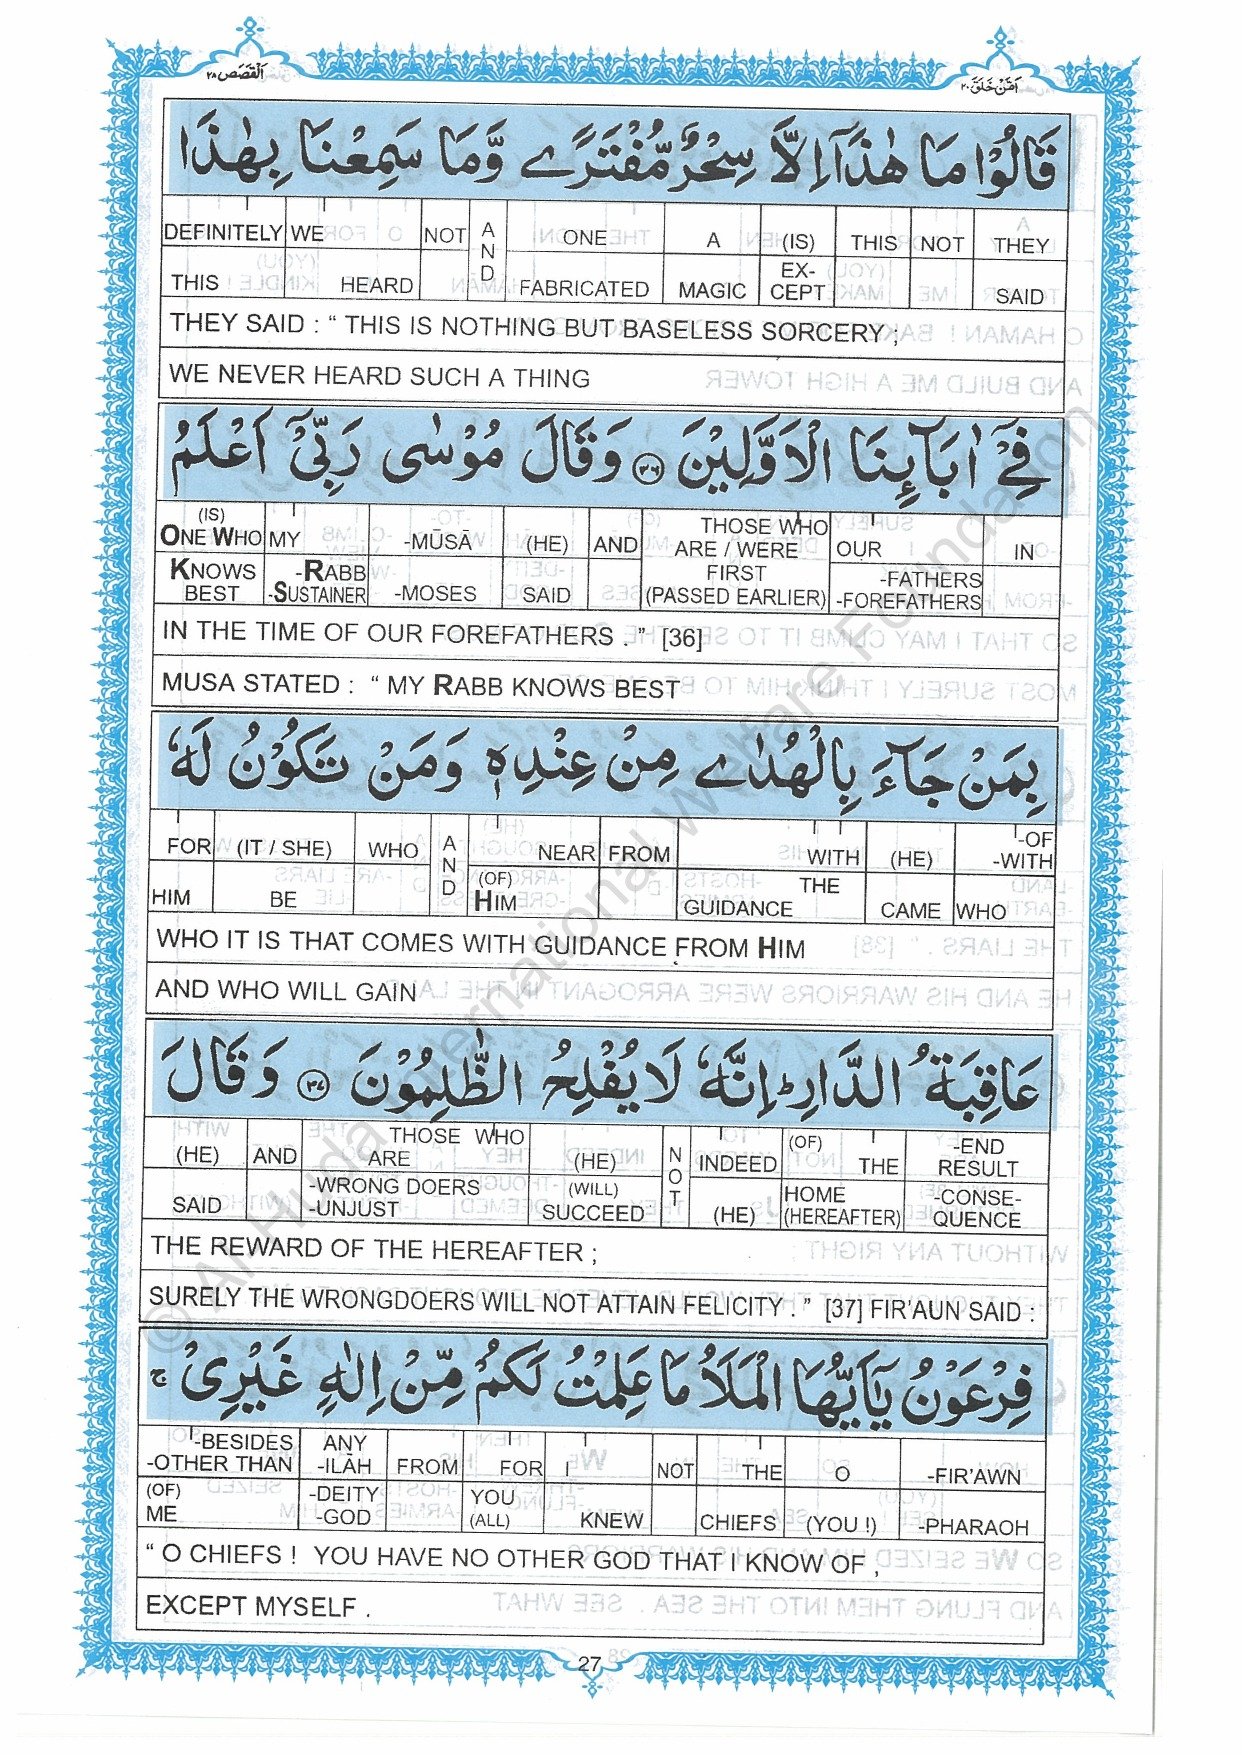 اَلْقَصَص ٢٨
اَمَّنْ خَلَقَ ٢٠
قَالُوْا مَا هٰذَآ اِلَّا سِحْرٌ مُّفْتَرًى وَّمَا سَمِعْنَا بِهٰذَا
DEFINITELY WE NOT AND ONE A (IS) THIS NOT THEY
THIS HEARD FABRICATED MAGIC EX-CEPT SAID
THEY SAID : “ THIS IS NOTHING BUT BASELESS SORCERY ;
WE NEVER HEARD SUCH A THING
فِيْٓ اٰبَآئِنَا الْاَوَّلِيْنَ ٣٦ وَقَالَ مُوْسٰى رَبِّيْٓ اَعْلَمُ
(IS) ONE WHO MY -MŪSĀ (HE) AND THOSE WHO ARE / WERE OUR IN
KNOWS BEST -RABB -SUSTAINER -MOSES SAID FIRST (PASSED EARLIER) -FATHERS -FOREFATHERS
IN THE TIME OF OUR FOREFATHERS . ” [36]
MUSA STATED : “ MY RABB KNOWS BEST
بِمَنْ جَآءَ بِالْهُدٰى مِنْ عِنْدِهٖ وَمَنْ تَكُوْنُ لَهٗ
FOR (IT / SHE) WHO AND NEAR FROM WITH (HE) -OF -WITH
HIM BE (OF) HIM THE GUIDANCE CAME WHO
WHO IT IS THAT COMES WITH GUIDANCE FROM HIM
AND WHO WILL GAIN
عَاقِبَةُ الدَّارِ ط اِنَّهٗ لَا يُفْلِحُ الظّٰلِمُوْنَ ٣٧ وَقَالَ
(HE) AND THOSE WHO ARE (HE) NOT INDEED (OF) THE -END RESULT
SAID -WRONG DOERS -UNJUST (WILL) SUCCEED (HE) HOME (HEREAFTER) -CONSE-QUENCE
THE REWARD OF THE HEREAFTER ;
SURELY THE WRONGDOERS WILL NOT ATTAIN FELICITY . ” [37] FIR'AUN SAID :
فِرْعَوْنُ يٰٓاَيُّهَا الْمَلَاُ مَا عَلِمْتُ لَكُمْ مِّنْ اِلٰهٍ غَيْرِيْ ج
-BESIDES -OTHER THAN ANY -ILĀH FROM FOR I NOT THE O -FIR'AWN
(OF) ME -DEITY -GOD YOU (ALL) KNEW CHIEFS (YOU !) -PHARAOH
“ O CHIEFS ! YOU HAVE NO OTHER GOD THAT I KNOW OF ,
EXCEPT MYSELF .
27
© Al Huda International Welfare Foundation